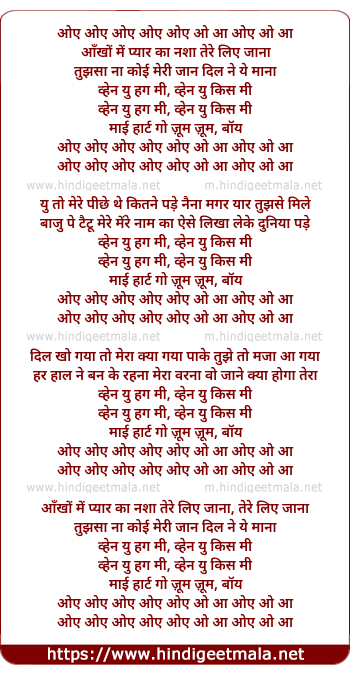 ओए ओए ओए ओए ओए ओ आ ओए ओ आ
आँखों में प्यार का नशा तेरे लिए जाना
तुझसा ना कोई मेरी जान दिल ने ये माना
व्हेन यु हग मी, व्हेन यु किस मी
व्हेन यु हग मी, व्हेन यु किस मी
माई हार्ट गो ज़ूम ज़ूम, बॉय
ओए ओए ओए ओए ओए ओ आ ओए ओ आ
ओए ओए ओए ओए ओए ओ आ ओए ओ आ
www.hindigeetmala.net m.hindigeetmala.net
यु तो मेरे पीछे थे कितने पड़े नैना मगर यार तुझसे मिले
बाजु पे टैटू मेरे मेरे नाम का ऐसे लिखा लेके दुनिया पड़े
व्हेन यु हग मी, व्हेन यु किस मी
व्हेन यु हग मी, व्हेन यु किस मी
माई हार्ट गो ज़ूम ज़ूम, बॉय
ओए ओए ओए ओए ओए ओ आ ओए ओ आ
ओए ओए ओए ओए ओए ओ आ ओए ओ आ
www.hindigeetmala.net m.hindigeetmala.net
दिल खो गया तो मेरा क्या गया पाके तुझे तो मजा आ गया
हर हाल ने बन के रहना मेरा वरना वो जाने क्या होगा तेरा
व्हेन यु हग मी, व्हेन यु किस मी
व्हेन यु हग मी, व्हेन यु किस मी
माई हार्ट गो ज़ूम ज़ूम, बॉय
ओए ओए ओए ओए ओए ओ आ ओए ओ आ
ओए ओए ओए ओए ओए ओ आ ओए ओ आ
www.hindigeetmala.net m.hindigeetmala.net
आँखों में प्यार का नशा तेरे लिए जाना, तेरे लिए जाना
तुझसा ना कोई मेरी जान दिल ने ये माना
व्हेन यु हग मी, व्हेन यु किस मी
व्हेन यु हग मी, व्हेन यु किस मी
माई हार्ट गो ज़ूम ज़ूम, बॉय
ओए ओए ओए ओए ओए ओ आ ओए ओ आ
ओए ओए ओए ओए ओए ओ आ ओए ओ आ
https://www.hindigeetmala.net